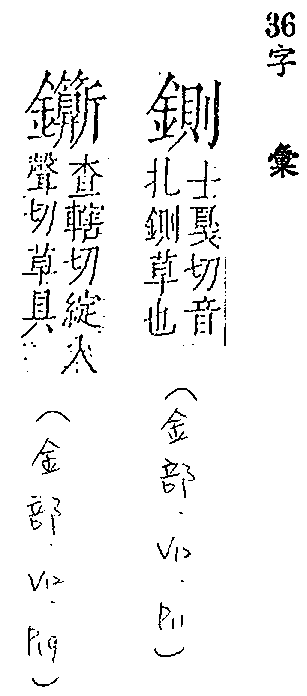 36字彙
鍘
士戛切音
札鍘草也
(金部.V12.P11)
查轄切綻入
聲切草具
(金部.V12.P19)